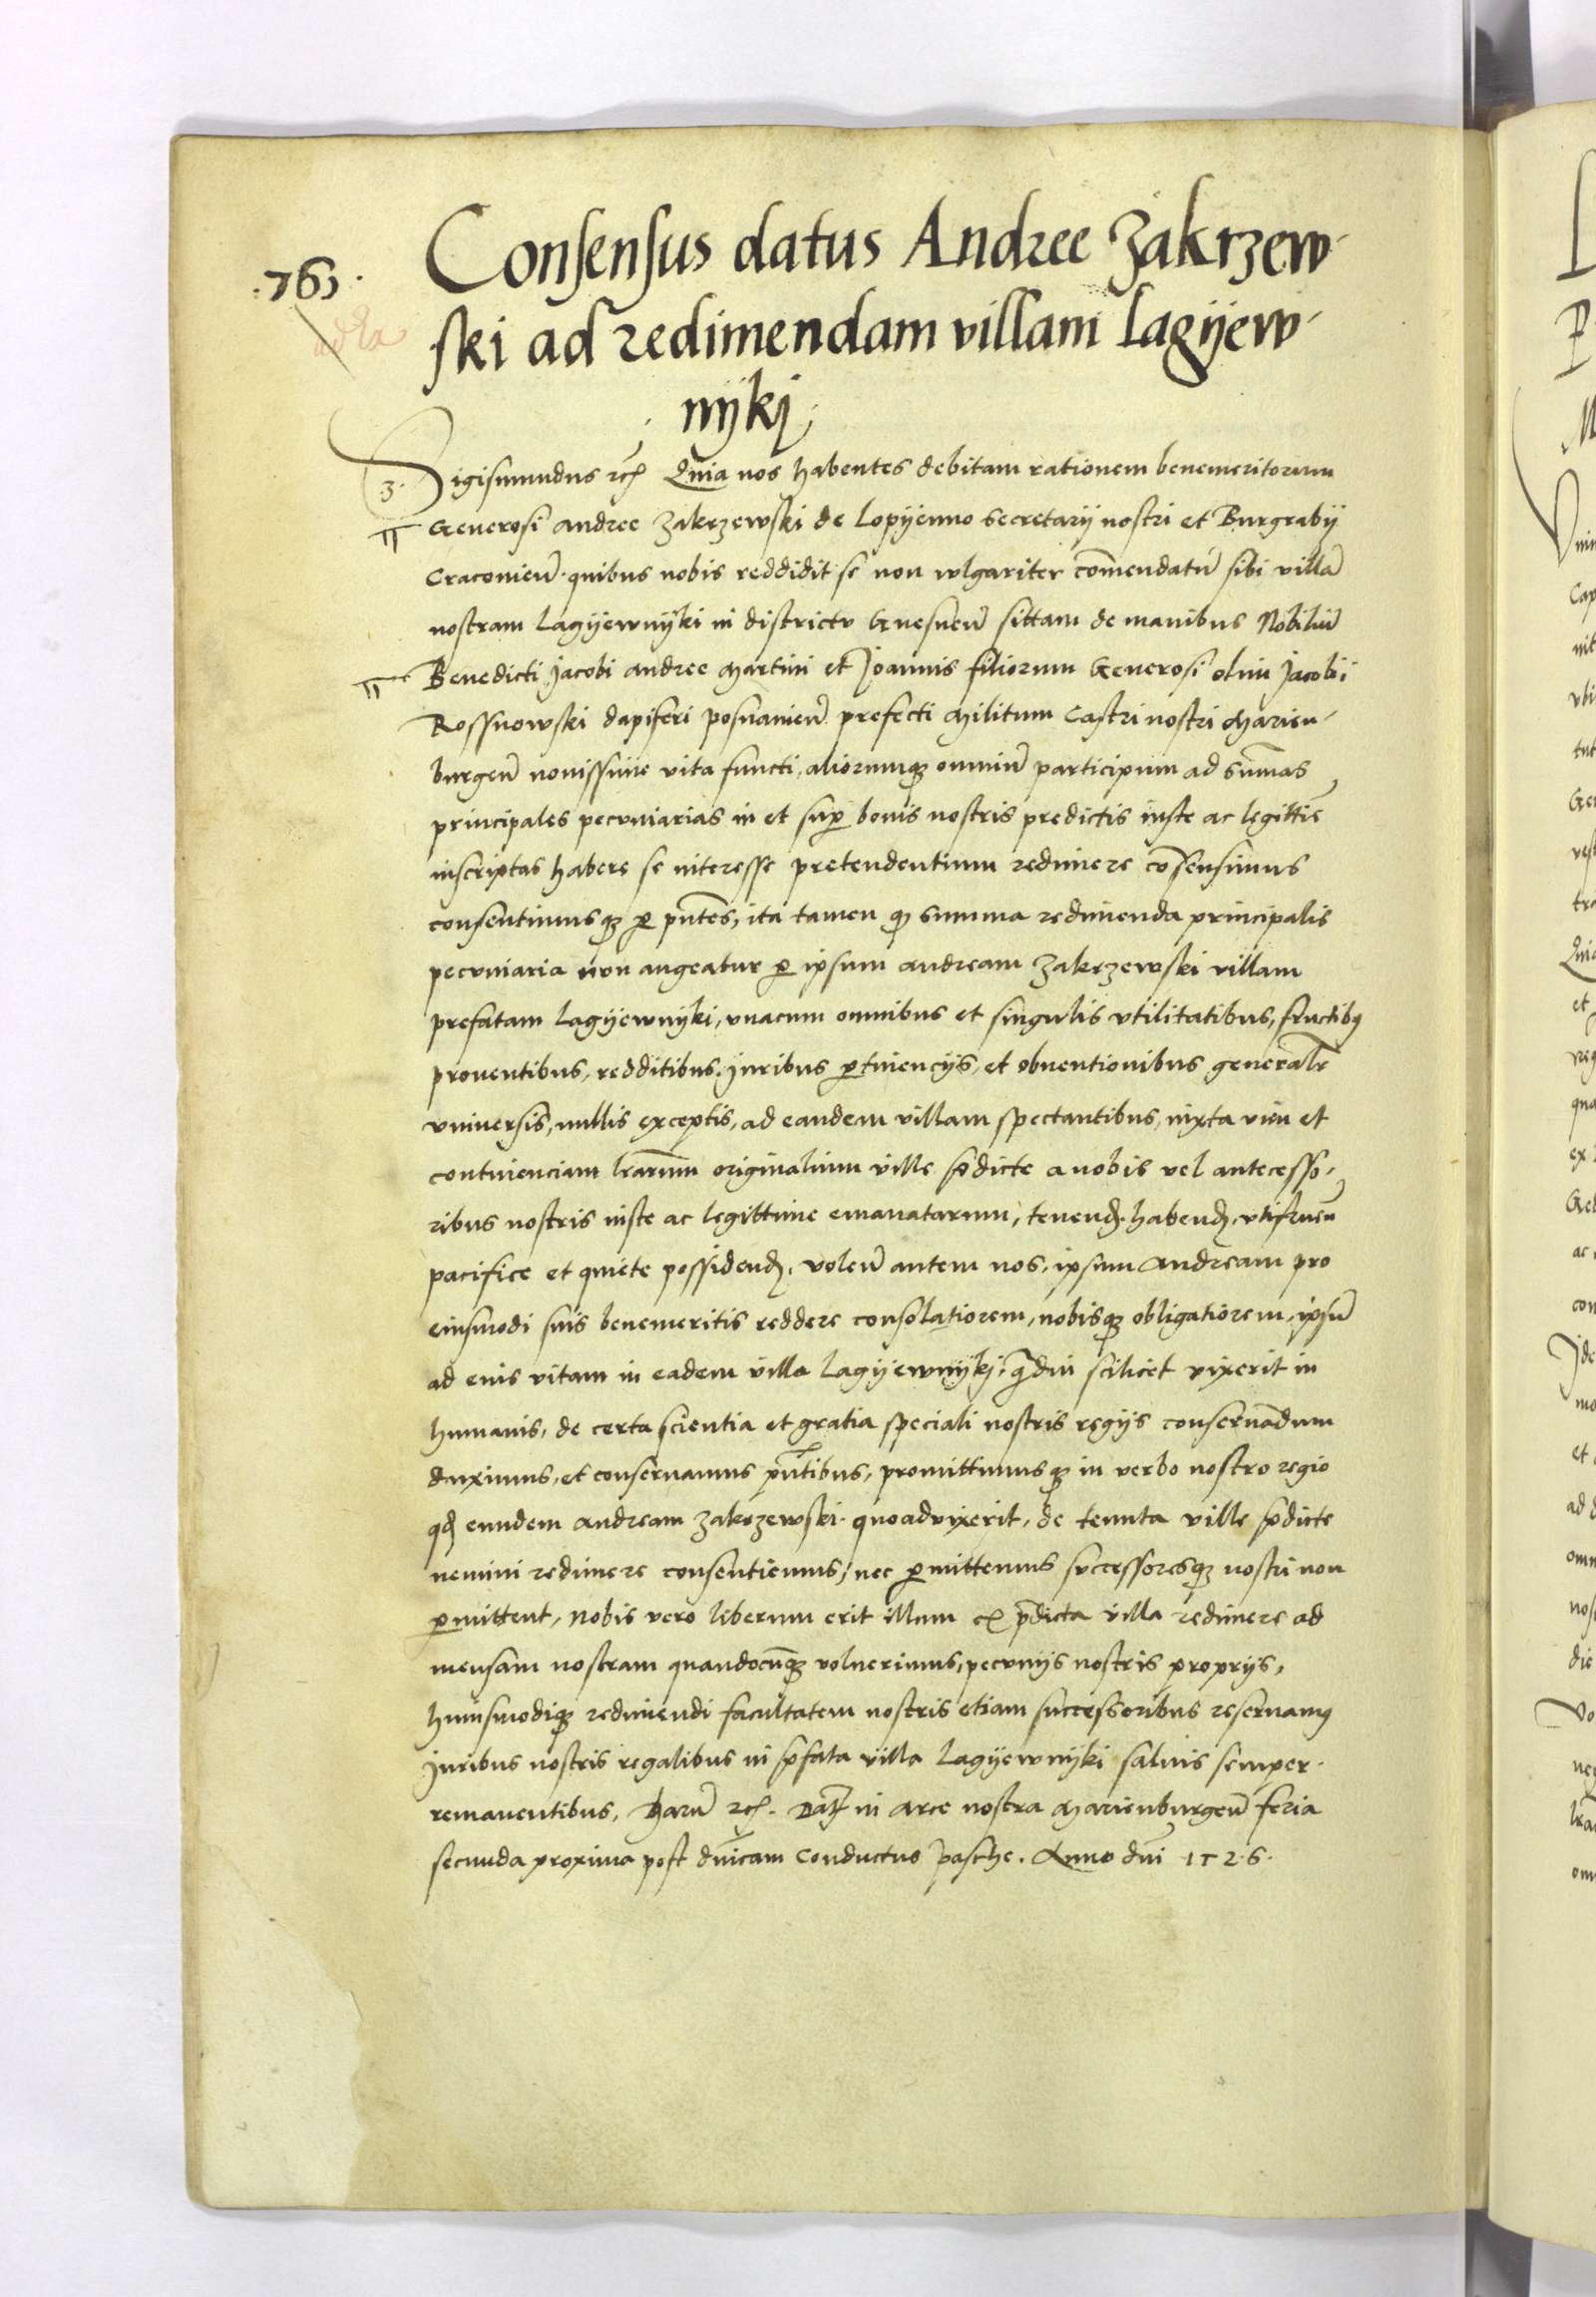 .763.
ad la
Consensus datus Andree Zakrzew-
ski ad redimendam villam Lagyew-
nyky.
.3.
Sigismundus etc̃ Quia nos habentes debitam rationem benemeritorum
Generosi Andree Zakrzewski de Lopyenno Secretarij nostri et Burgrabij
Cracovien̄. quibus nobis reddidit se non vulgariter com̄endatū sibi villā
nostram Lagyewnyki in districtv Gnesnen̄ sittam de manibus Nobiliū
Benedicti Jacobi Andree Martini et Joannis filiorum Generosi olim Jacobi
Rossnowski dapiferi posnanien̄ prefecti Militum Castri nostri Marien-
burgen̄ nouissime vita functi, aliorumqꝫ omniū participum ad sum̄as
principales pecvniarias in et suꝑ bonis nostris predictis iuste ac legittiē
inscriptas habere se interesse pretendentium redimere cōsensimus
consentimusqꝫ ꝑ pn̄tes, ita tamen qꝫ summa redimenda principalis
pecvniaria non augeatur ꝑ ipsum Andream Zakrzewski villam
prefatam Lagyewnyki, vnacum omnibus et singvlis vtilitatibus, fructibꝰ
prouentibus, redditibus, Juribus ꝑtinencijs, et obuentionibus generalr̄
vniuersis, nullis exceptis, ad eandem villam spectantibus, iuxta vim et
continenciam lr̄arum originalium ville p̄dicte a nobis vel antecesso-
ribus nostris iuste ac legittime emanatarum, tenenđ. habenđ, vtifruen̄
pacifice et quiete possidenđ. volen̄ autem nos, ipsum Andream pro
eiusmodi suis benemeritis reddere consolatiorem, nobisqꝫ obligatiorem, ipsū
ad eius vitam in eadem villa Lagyewnykj, q̄diu scilicet vixerit in
humanis, de certa scientia et gratia speciali nostris regijs conseruādum
duximus, et conseruamus pn̄tibus, promittimusqꝫ in verbo nostro regio
qđ eundem Andream Zakrzewski. quoadvixerit, de tenuta ville p̄dicte
nemini redimere consentiemus, nec ꝑmittemus svccessoresqꝫ nostri non
ꝑmittent, Nobis vero liberum erit illum ex p̄dicta villa redimere ad
mensam nostram quandocūqꝫ voluerimus, pecvnijs nostris proprijs,
huiusmodiqꝫ redimendi facultatem nostris etiam successoribus reseruamꝰ
Juribus nostris regalibus in p̄fata villa Lagyewnyki saluis semper
remanentibus, Harū etc̃. Dat̄ in Arce nostra Marienburgen̄ feria
secunda proxima post dn̄icam Conductus Pasche. Anno dn̄i 1526.